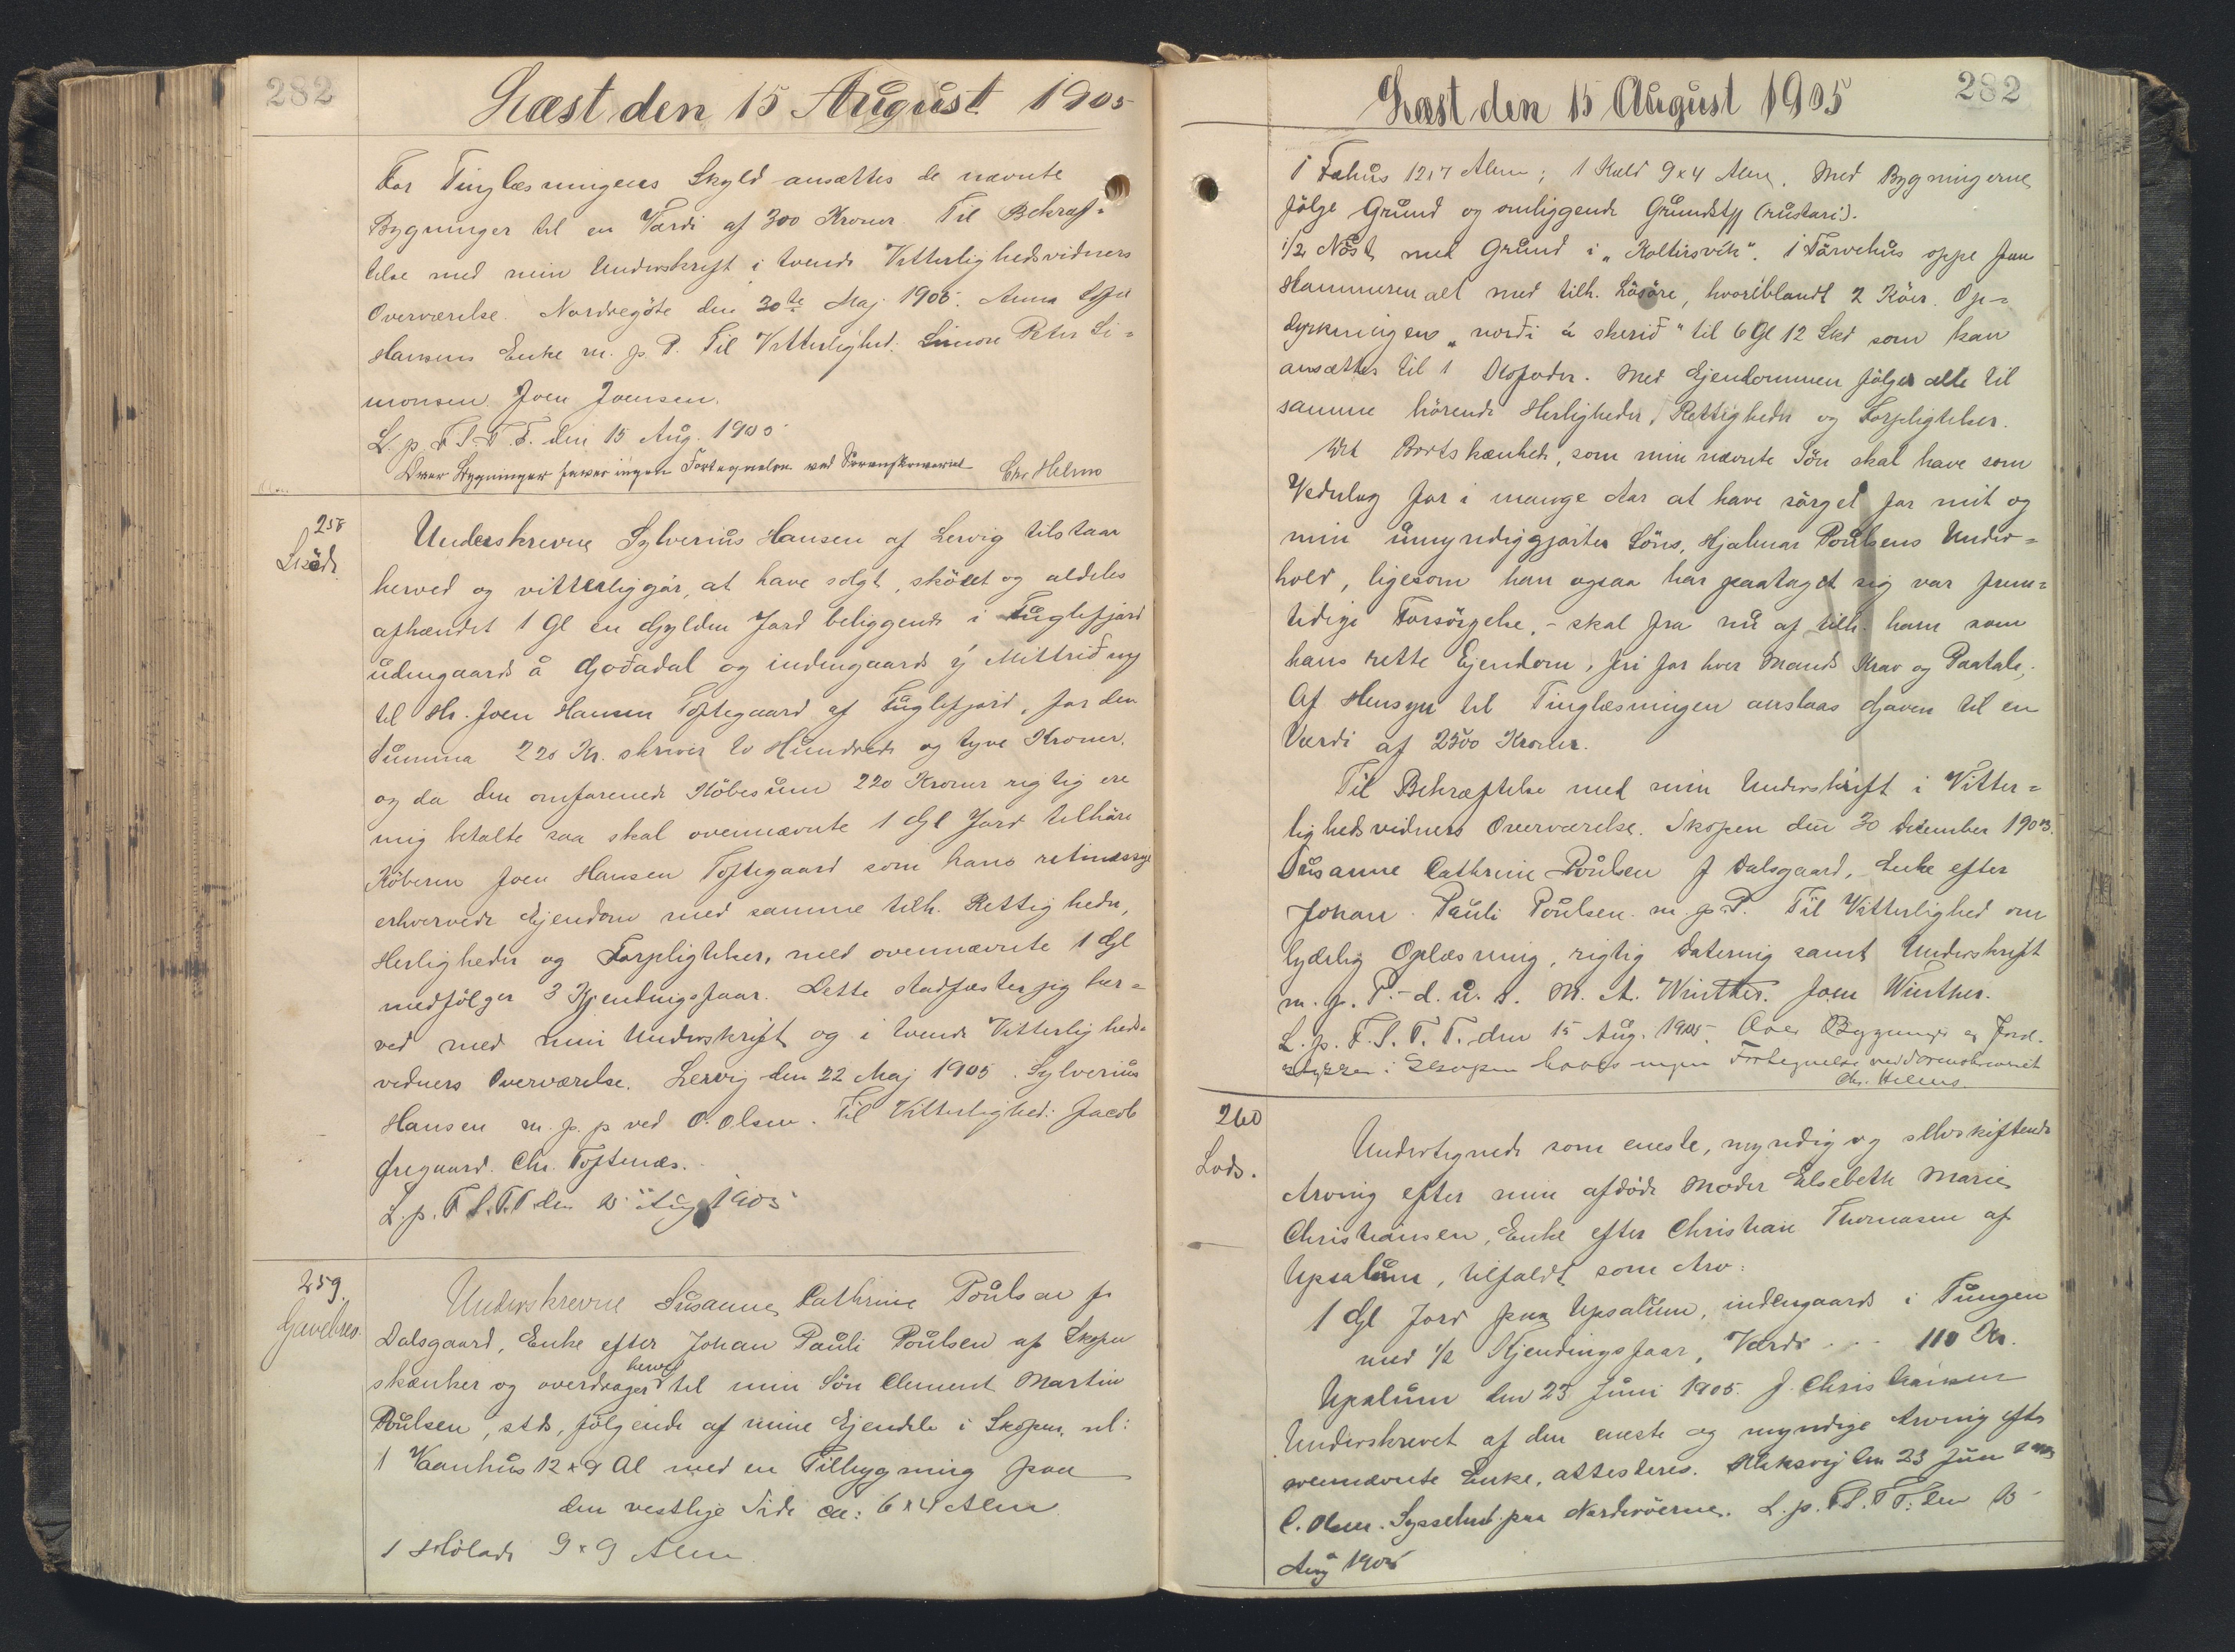 282
Læst den 15 August 1905
For Tinglæsningens Skyld ansættes de nævnte
Bygninger til en Værdi af 300 Kroner. Til Bekræf-
telse med min Underskrift i tvende Vitterlighedsvidners
Overværelse. Nordregöte den 30te Maj 1905. Anna
Hansens Enke m. p. P. Til Vitterlighed: Simon Peter Si-
monsen Joen Joensen.
L. p. F. S. T. T. den 15 Aug. 1905
Over Bygninger haves ingen Fortegnelse ved Sorenskriveriet Chr Helms
258
Sköde
Underskrevne Sylverius Hansen af Lervig tilstaar
herved og vitterliggör, at have solgt, sködet og aldeles
afhændet 1 Gl en Gylden Jord beliggende i Fuglefjord
udengaards å Gođadal og indengaards ý Mittriđ
til Hr. Joen Hansen Toftegaard af Fuglefjord, for den
Summa 220 Kr. skriver to Hundrede og tyve Kroner,
og da den omforenede Köbesum 220 Kroner rigtig ere
mig betalte saa skal ovennævnte 1 Gl Jord tilhöre
Köberen Joen Hansen Toftegaard som hans retmæssige
erhvervede Ejendom med samme tilh. Rettigheder,
Herligheder og Forpligtelser, med ovennævnte 1 Gl
medfölger 3 Kjendingsfaar. Dette stadfæster jeg her-
ved med min Underskrift og i tvende Vitterligheds-
vidners Overværelse. Lervig den 22 Maj 1905. Sylverius
Hansen m. p. p ved O. Olsen. Til Vitterlighed: Jacob
Öregaard. Chr. Toftenæs.
L. p. F. S. T. T. den 15 Aug 1905
259.
Gavebrev
Underskrevne Susanne Cathrine Poulsen f.
Dalsgaard, Enke efter Johan Pauli Poulsen af Skopen
skænker og overdrager herved til min Sön Clement Martin
Poulsen, stds, fölgende af mine Ejendele i Skopen, nl:
1 Vaanhus 12 x 9 Al med en Tilbygning paa
den vestlige Side ca: 6 x 4 Alen
1 Hölade 9 x 9 Alen
Læst den 15 August 1905
282
1 Fæhus 12x7 Alen; 1 Hæld 9x4 Alen. Med Bygningerne
fölge Grund og omliggende Grundstyk (rustari).
1/2 Nöst med Grund i „Koltursvik“. 1 Törvehus oppe paa
Hammeren alt med tilh. Lösöre, hvoriblandt 2 Köer. Op-
dyrkningen „norđi á skeriđ“ til 6 Gl 12 Skd som kan
ansættes til 1 Kofoder. Med Ejendommen fölger alle til
samme hörende Herligheder, Rettigheder og Forpligtelser.
Det Bortskænkede, som min nævnte Sön skal have som
Vederlag for i mange Aar at have sörget for mit og
min umyndiggjorte Söns, Hjalmar Poulsens Under-
hold, ligesom han ogsaa har paataget sig vor frem-
tidige Forsörgelse, - skal fra nu af tilh. ham som
hans rette Ejendom, fri for hver Mands Krav og Paatale.
Af Hensyn til Tinglæsningen anslaas Gaven til en
Værdi af 2500 Kroner.
Til Bekræftelse med min Underskrift i Vitter-
lighedsvidners Overværelse. Skopen den 30 December 1903.
Susanne Cathrine Poulsen f Dalsgaard, Enke efter
Johan Pauli Poulsen. m. p. P. Til Vitterlighed om
lydelig Oplæsning, rigtig Datering samt Underskrift
m. p. P. - d. u. s. M. A. Winther. Joen Winther.
L. p. F. S. T. T. den 15 Aug. 1905. Over Bygninger og Jord-
stykker i Skopen haves ingen Fortegnelse ved Sorenskriveriet
Chr. Helms.
260
Lods.
Undertegnede som eneste, myndig og selvskiftende
Arving efter min afdöde Moder Elsebeth Marie
Christiansen, Enke efter Christian Thomasen af
Upsalum, tilfaldt som Arv:
1 Gl Jord paa Upsalum, indengaards i Tungen
med 1/2 Kjendingsfaar, Værdi . . . 110 Kr.
Upsalum den 23 Juni 1905. J. Christiansen
Underskrevet af den eneste og myndige Arving efter
ovennævnte Enke, attesteres. Klaksvig den 23 Juni 1905
C. Olsen. Sysselmd. paa Norderöerne. L. p. F. S. T. T. den 15
Aug 1905